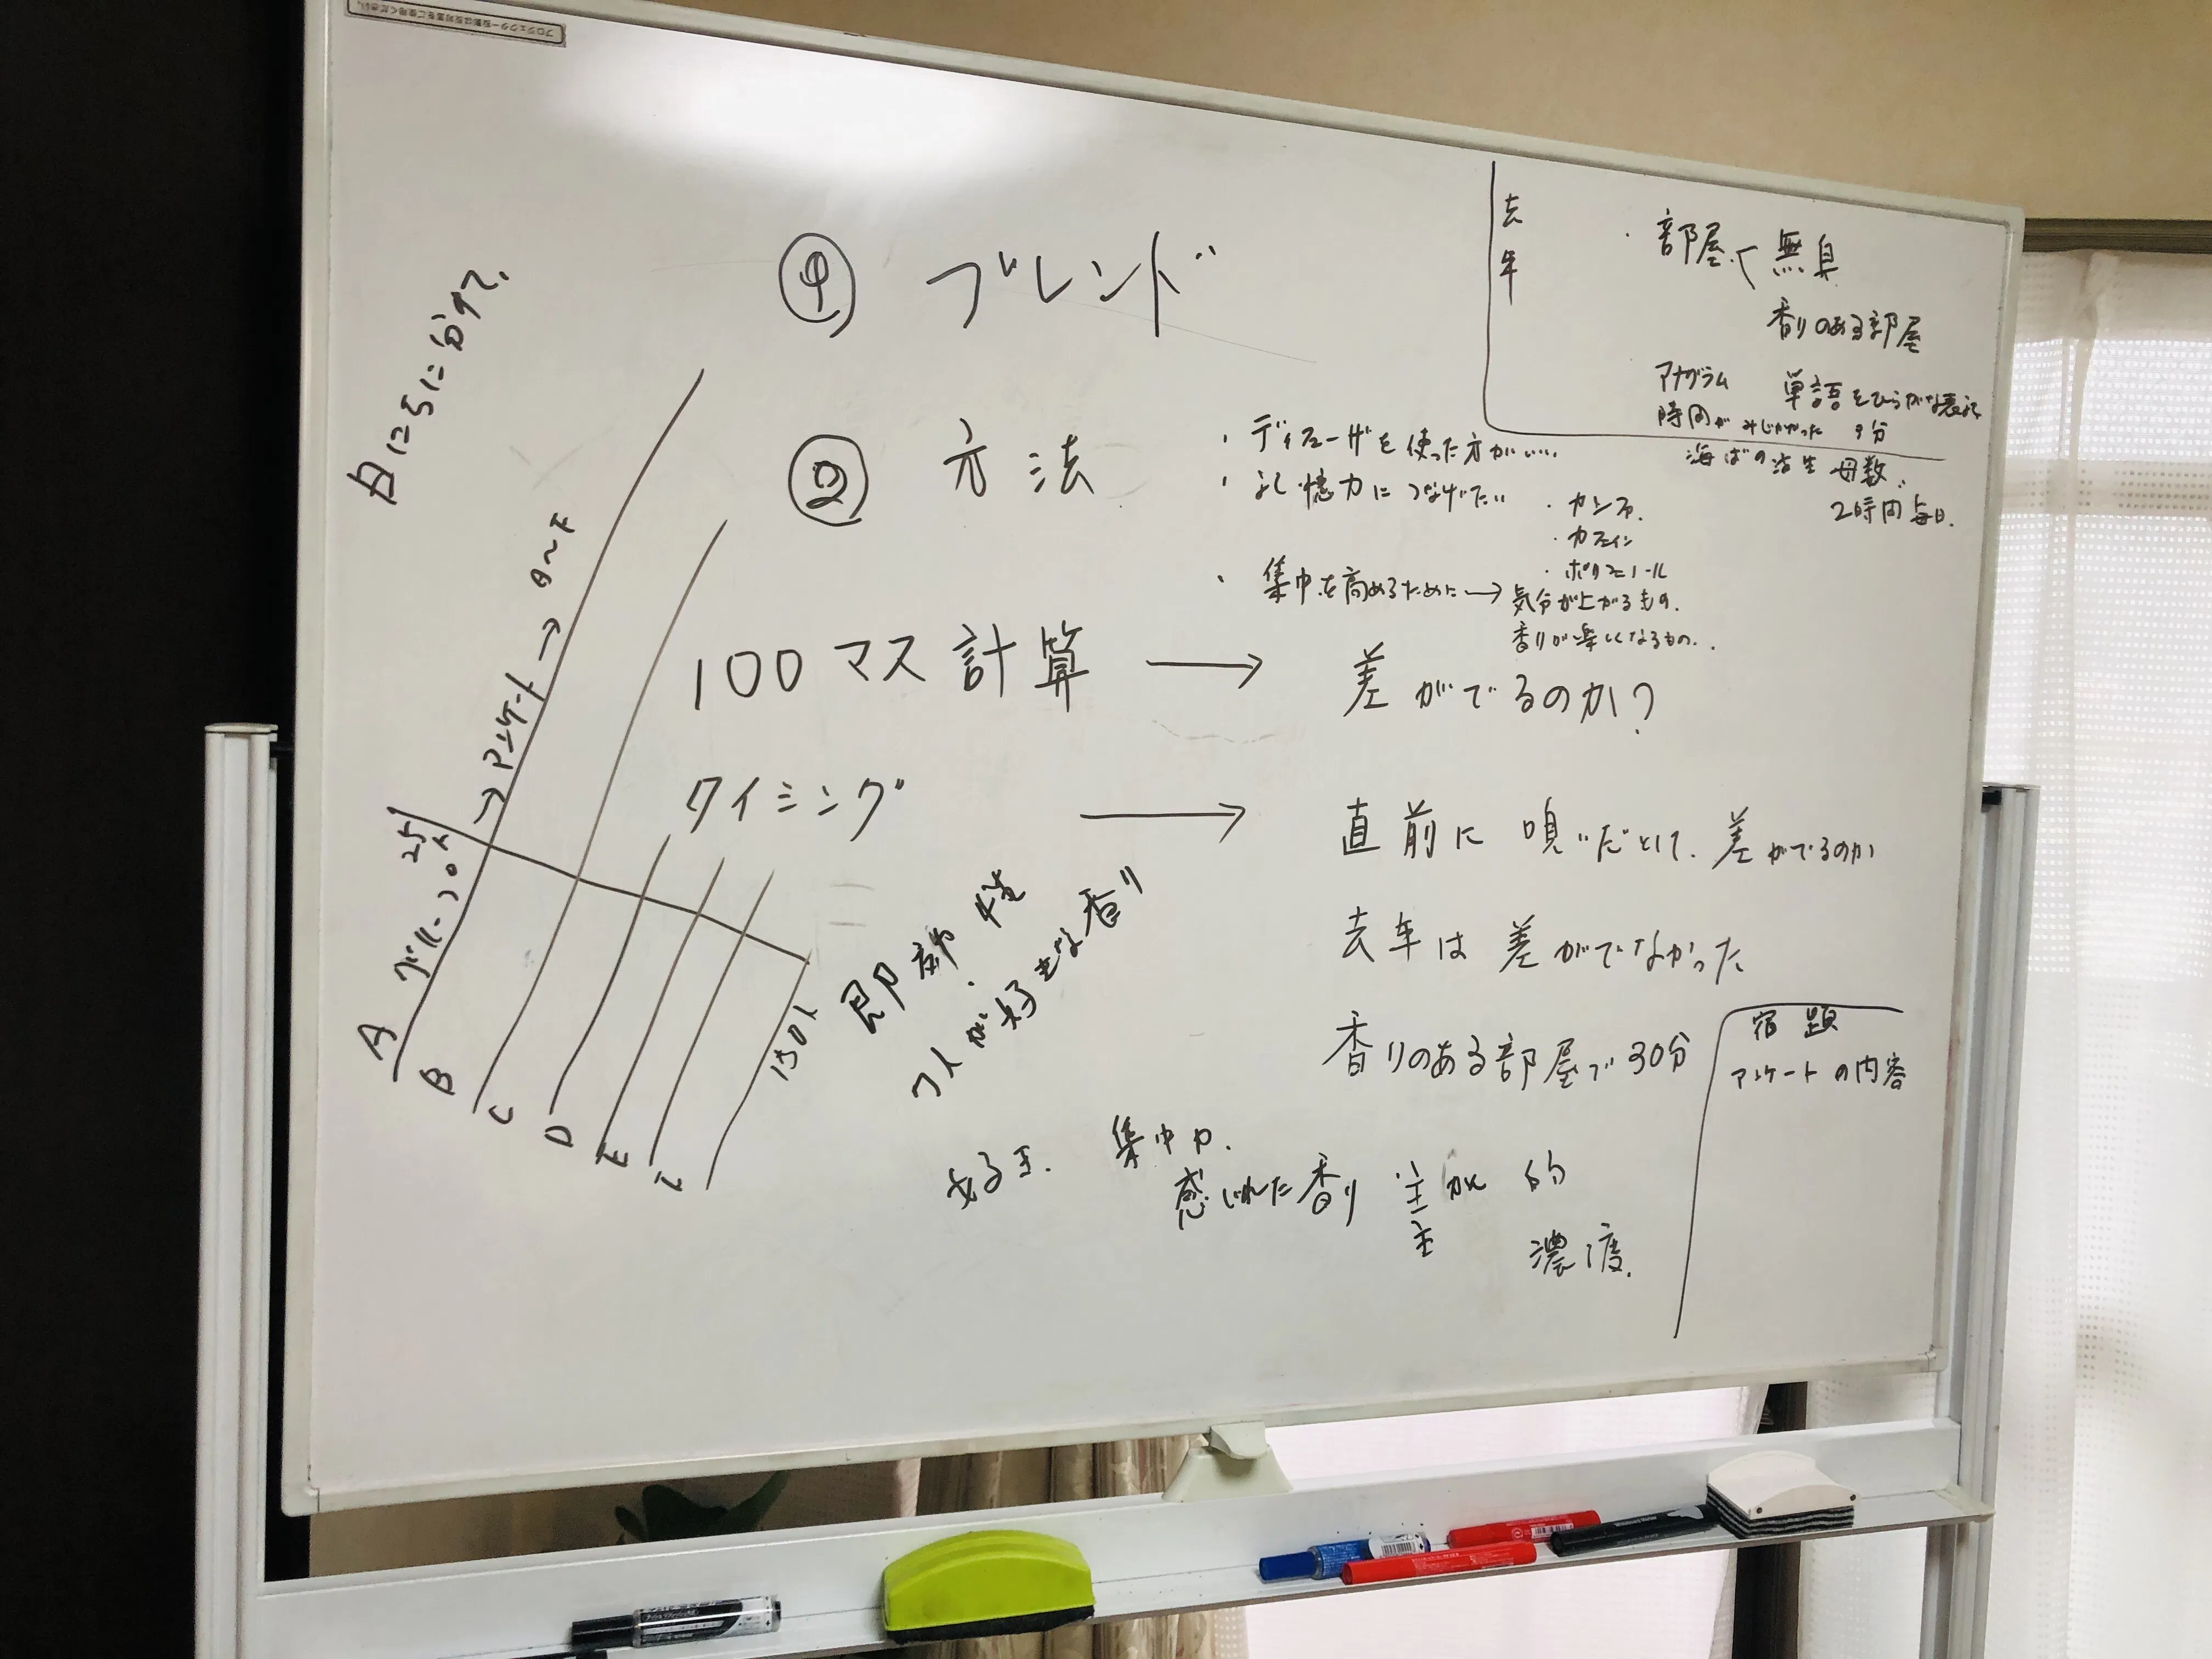 日にちに分けて、
① ブレンド
去年
・部屋で 無臭
香りのある部屋
アナグラム 単語をひらがな表記
時間がみじかかった 9分
母数、
2時間毎日.
② 方法
・ディフューザを使った方がいい…
・記憶力につなげたい
・カンフ.
・カフェイン
・ポリフェノール
・集中を高めるために→気分が上がるもの.
香りが楽しくなるもの..
100マス計算 → 差がでるのか?
タイミング → 直前に 嗅いだとして、差がでるのか
去年は 差がでなかった
香りのある部屋で30分
A グループ 25人 → アンケート → A〜F
B
C
D
E
150人
即効性
1人が好きな香り
宿題
アンケートの内容
集中力.
感じれた香り 的
濃度.